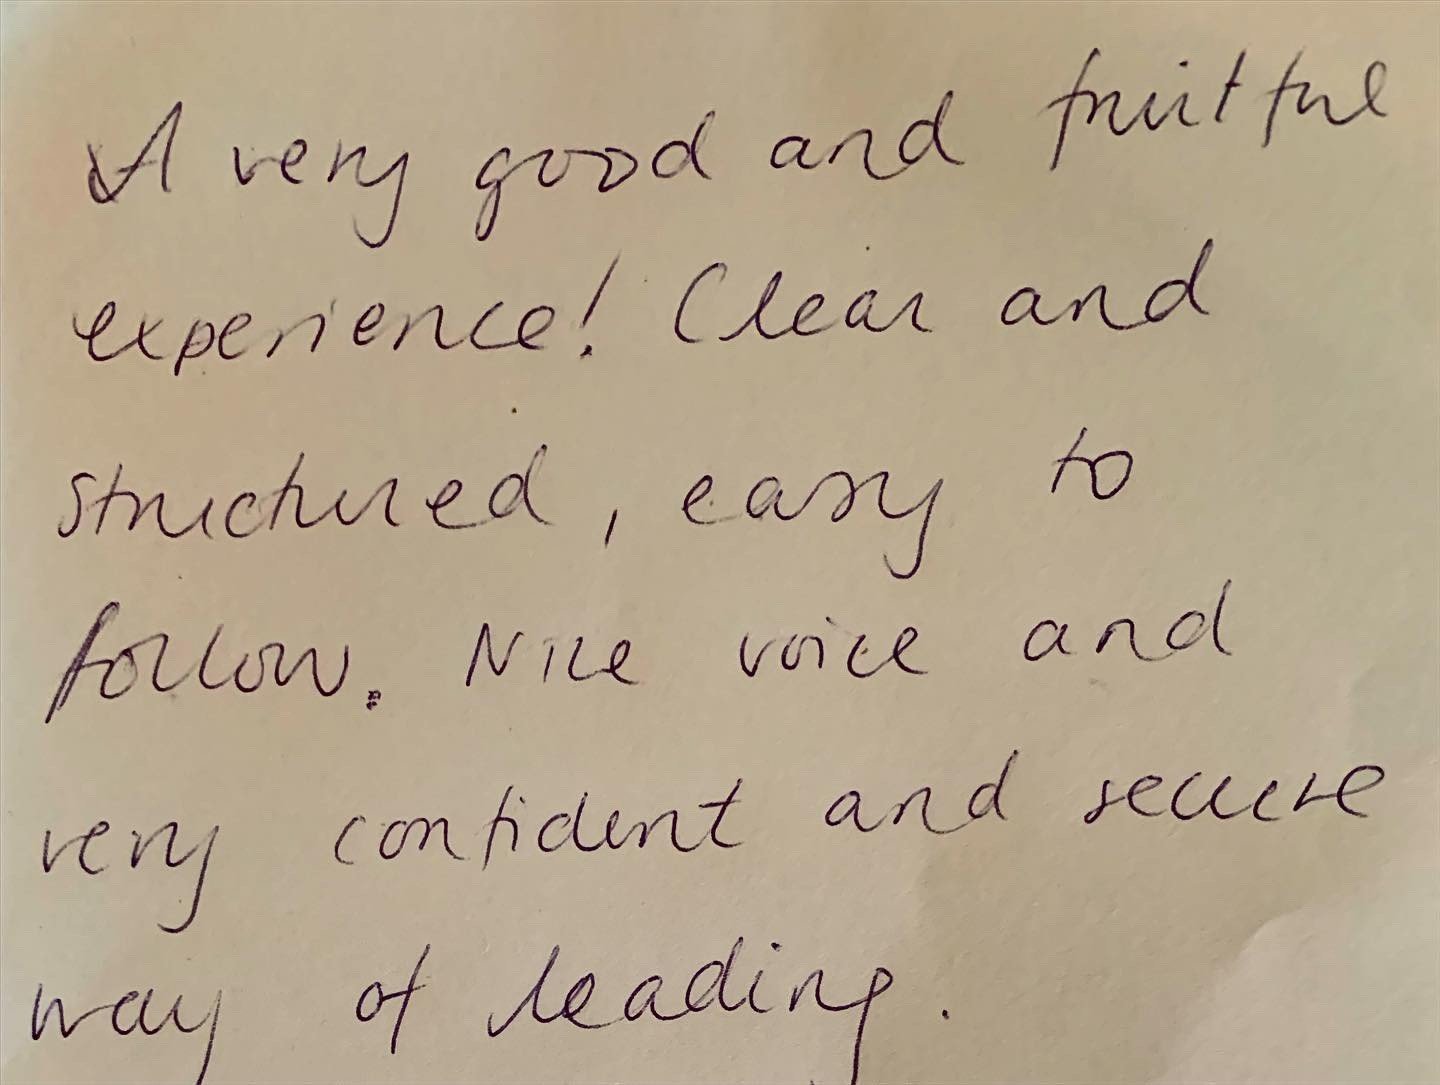 A very good and fruitful
experience! Clear and
structured, easy to
follow. Nice voice and
very confident and secure
way of leading.